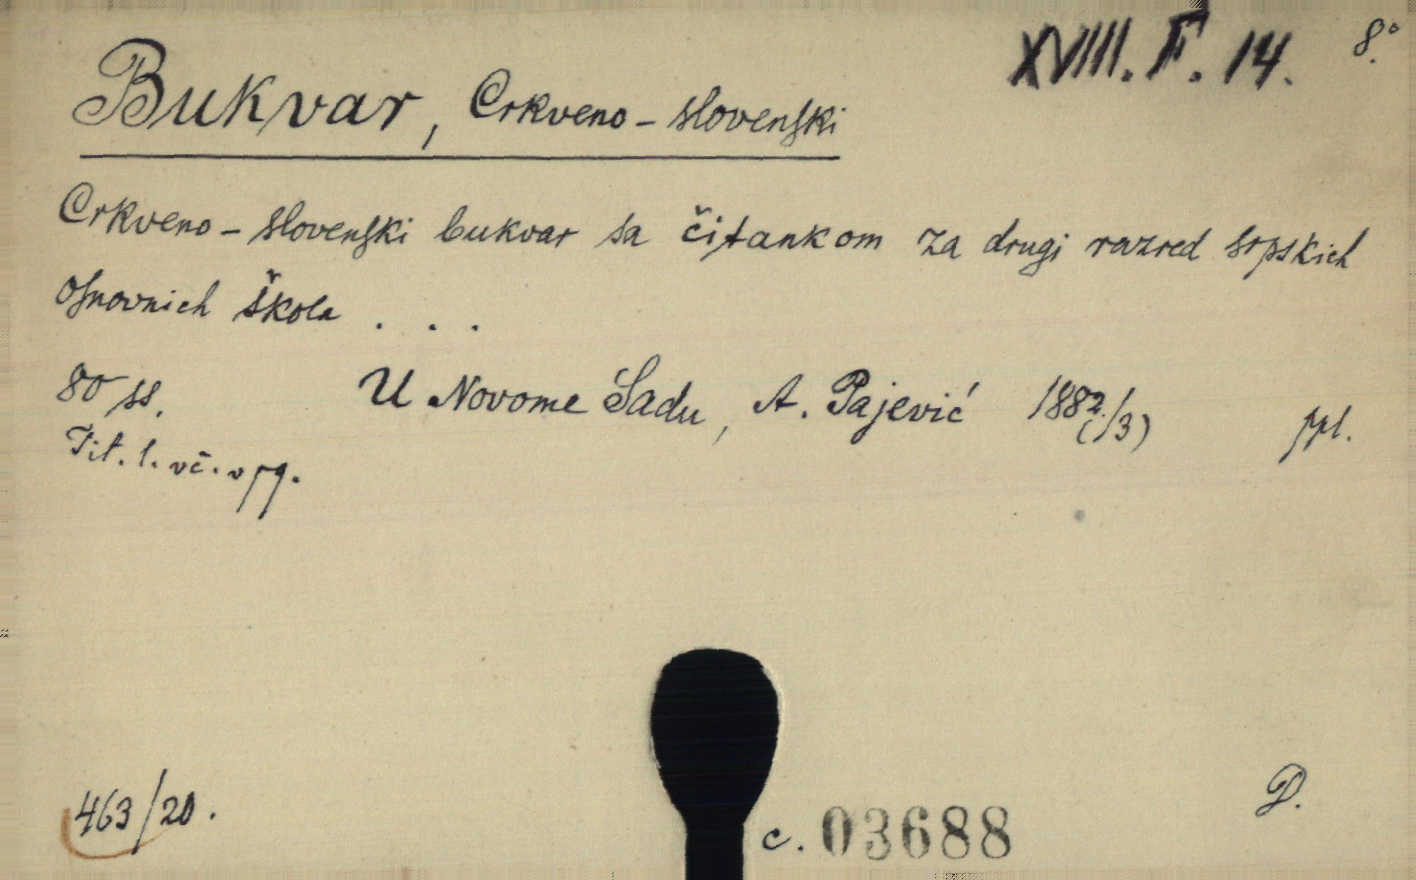 XVIII. F. 14. 8.°
Bukvar, Crkveno-slovenski
Crkveno-slovenski bukvar sa čitankom za drugi razred srpskich
osnovnich škola . . .
80 ss. U Novome Sadu, A. Pajević 1882. (/3) ppl.
Tit. l. vč. v pg.
463/20. D.
c. 03688